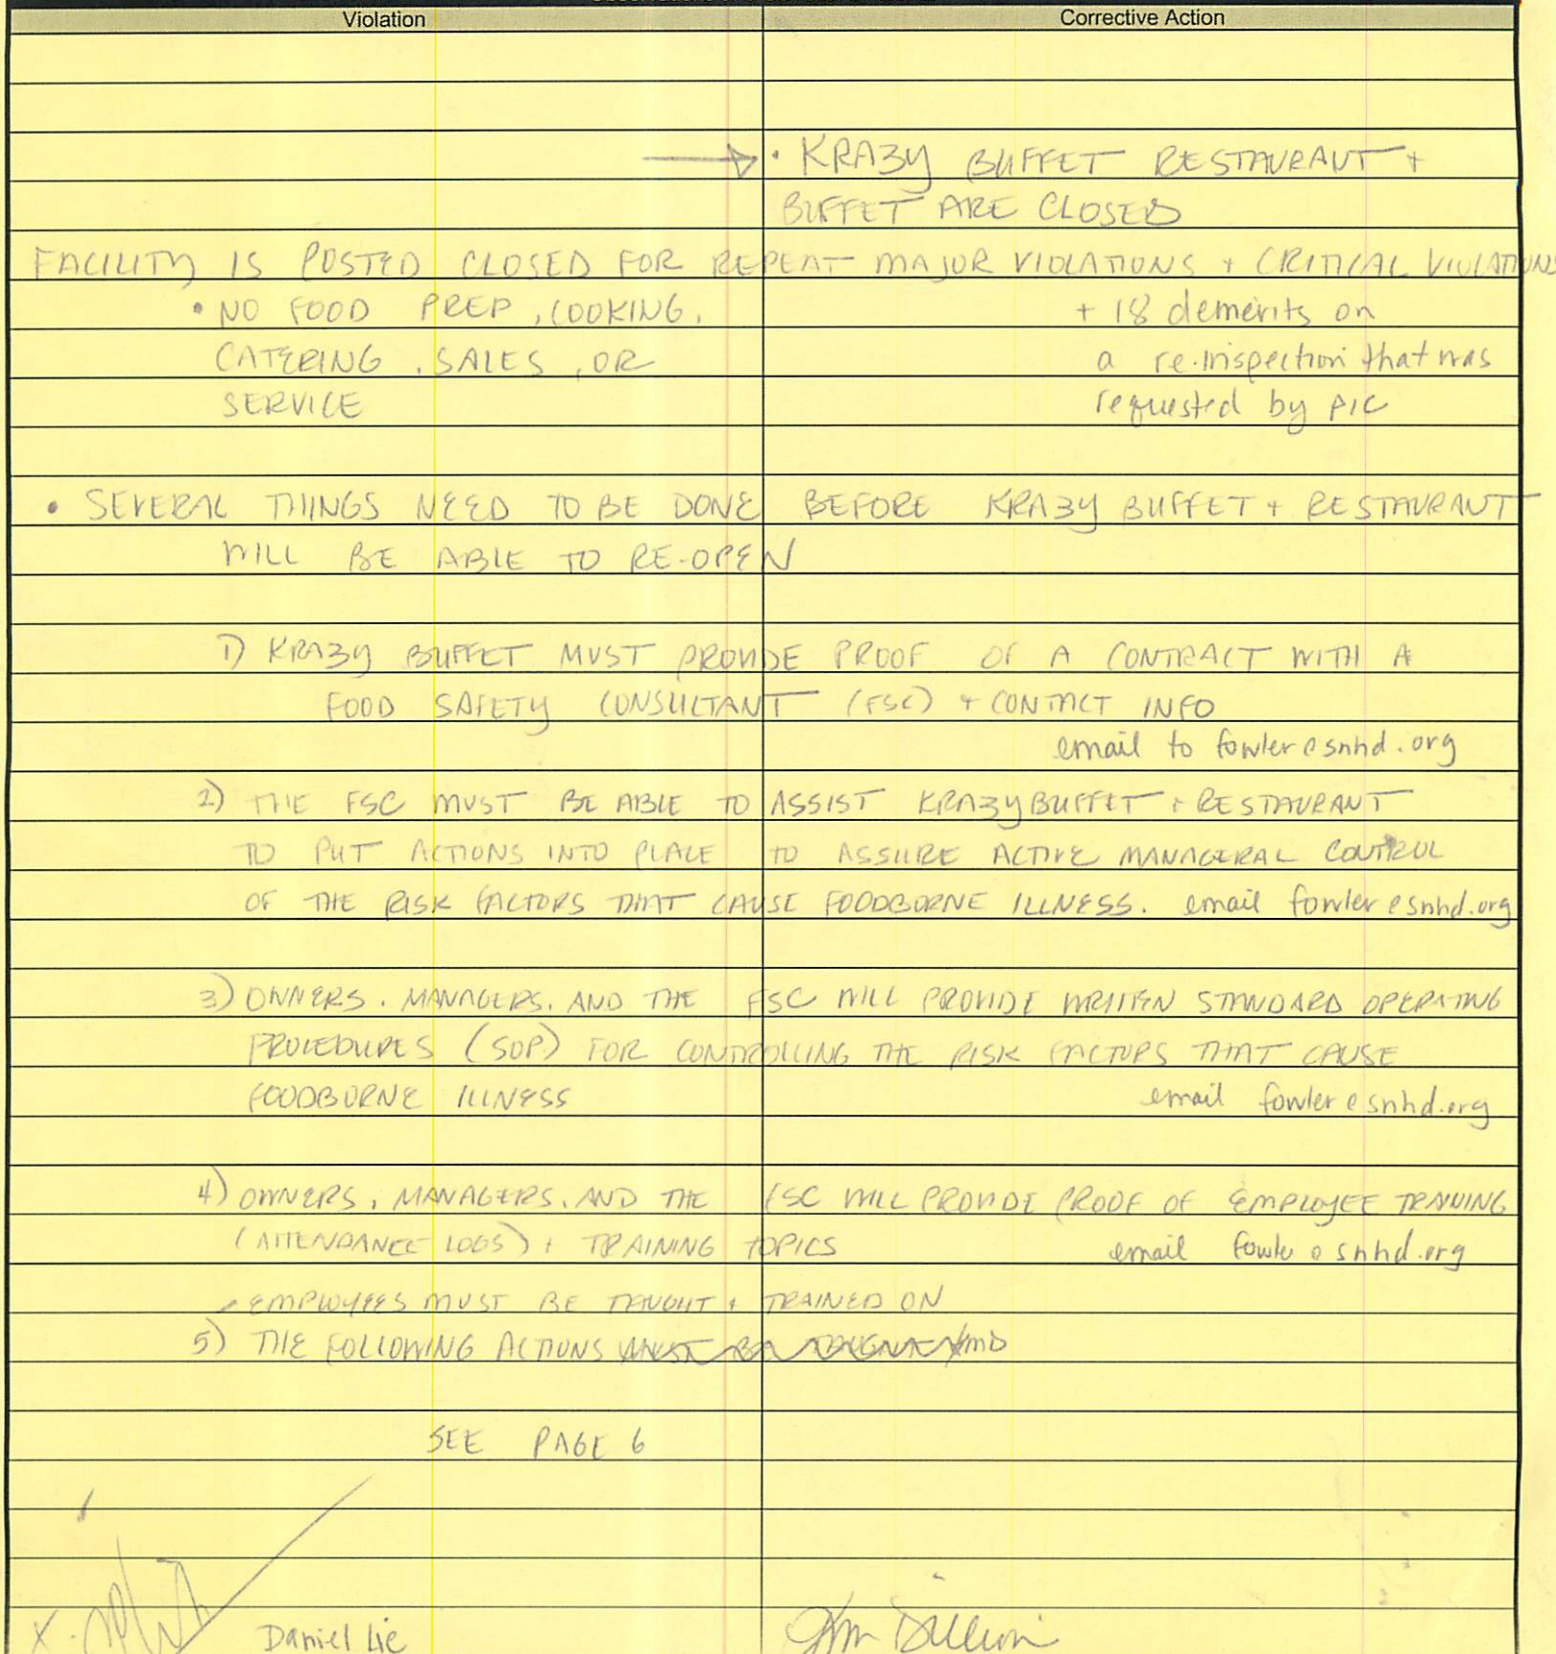 Violation Corrective Action
→ • KRAZY BUFFET RESTAURANT +
BUFFET ARE CLOSED
FACILITY IS POSTED CLOSED FOR REPEAT MAJOR VIOLATIONS + CRITICAL VIOLATIONS
• NO FOOD PREP, COOKING, + 18 demerits on
CATERING, SALES, OR a re-inspection that was
SERVICE requested by PIC
• SEVERAL THINGS NEED TO BE DONE BEFORE KRAZY BUFFET + RESTAURANT
WILL BE ABLE TO RE-OPEN
1) KRAZY BUFFET MUST PROVIDE PROOF OF A CONTRACT WITH A
FOOD SAFETY CONSULTANT (FSC) + CONTACT INFO
email to fowler@snhd.org
2) THE FSC MUST BE ABLE TO ASSIST KRAZY BUFFET + RESTAURANT
TO PUT ACTIONS INTO PLACE TO ASSURE ACTIVE MANAGERAL CONTROL
OF THE RISK FACTORS THAT CAUSE FOODBORNE ILLNESS. email fowler@snhd.org
3) OWNERS, MANAGERS, AND THE FSC WILL PROVIDE WRITTEN STANDARD OPERATING
PROCEDURES (SOP) FOR CONTROLLING THE RISK FACTORS THAT CAUSE
FOODBORNE ILLNESS email fowler@snhd.org
4) OWNERS, MANAGERS, AND THE FSC WILL PROVIDE PROOF OF EMPLOYEE TRAINING
(ATTENDANCE LOGS) + TRAINING TOPICS email fowler@snhd.org
EMPLOYEES MUST BE TAUGHT + TRAINED ON
5) THE FOLLOWING ACTIONS
SEE PAGE 6
X Daniel Lie